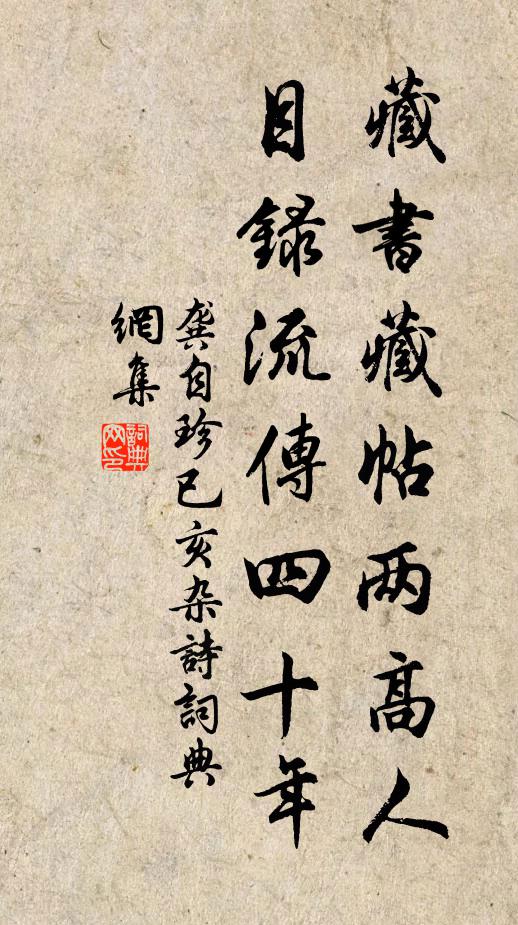 藏書藏帖两高人
目録流傳四十年
龚自珍己亥杂詩詞典
網集
詞典网印